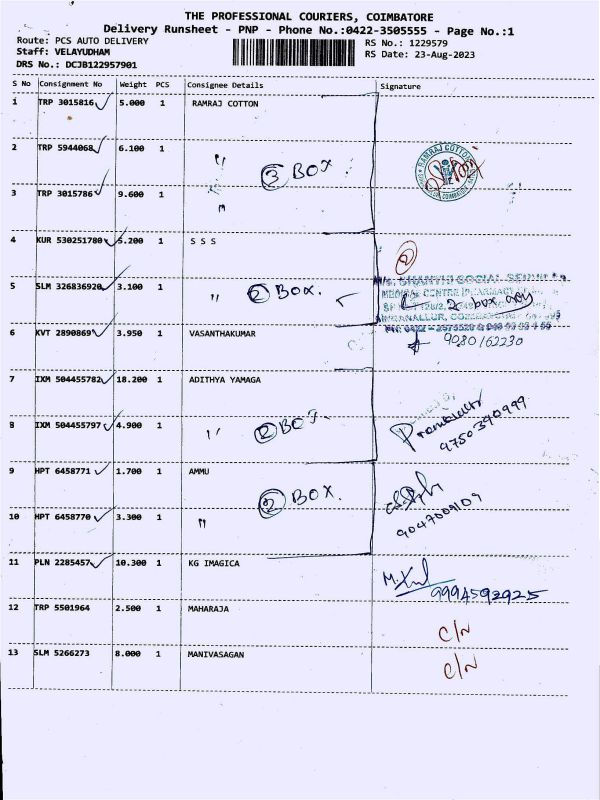 THE PROFESSIONAL COURIERS, COIMBATORE
Delivery Runsheet - PNP - Phone No.:0422-3505555 - Page No.:1
Route: PCS AUTO DELIVERY
RS No.: 1229579
Staff: VELAYUDHAM
RS Date: 23-Aug-2023
DRS No.: DCJB122957901
S No Consignment No Weight PCS Consignee Details Signature
1 TRP 3015816 ✓ 5.000 1 RAMRAJ COTTON
2 TRP 5944068 ✓ 6.100 1 "
③ BOX
RAMRAJ COTTON
COIMBATORE
3 TRP 3015786 ✓ 9.600 1 "
4 KUR 530251780 ✓ 5.200 1 S S S
②
5 SLM 326836920 ✓ 3.100 1 " ② BOX.
MEDICAL CENTRE PHARMACY
2 box only
6 KVT 2890869 ✓ 3.950 1 VASANTHAKUMAR
9080162230
7 IXM 504455782 ✓ 18.200 1 ADITHYA YAMAGA
8 IXM 504455797 ✓ 4.900 1 " ② BOX.
9750390999
9 HPT 6458771 ✓ 1.700 1 AMMU
② BOX.
10 HPT 6458770 ✓ 3.300 1 "
9047009109
11 PLN 2285457 ✓ 10.300 1 KG IMAGICA
9994592925
12 TRP 5501964 2.500 1 MAHARAJA
C/N
13 SLM 5266273 8.000 1 MANIVASAGAN
C/N